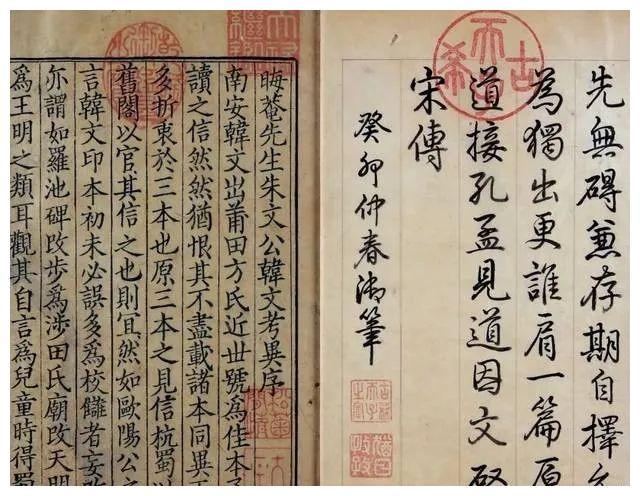 古希天子
先無碍兼存期自擇
為獨出更誰肩一篇原
道接孔孟見道因文啓
宋傳
癸卯仲春御筆
猶日孜孜
天祿繼鑑
晦菴先生朱文公韓文考異序
南安韓文出莆田方氏近世號為佳本
讀之信然然猶恨其不盡載諸本同異
多折衷於三本也原三本之見信杭蜀以
舊閣以官其信之也則冝然如歐陽公之
言韓文印本初未必誤多為校讎者妄改
亦謂如羅池碑改步為涉田氏廟改天明
為王明之類耳觀其自言為兒童時得蜀